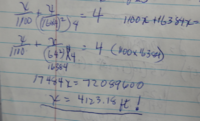 x/1100 + x/(1264)²/4 = 4 1100x+16384x=
x/1100 + x/(64²)4 = 4 (1100x16384)
16384
17484x = 72089600
x = 4123.18 ft!